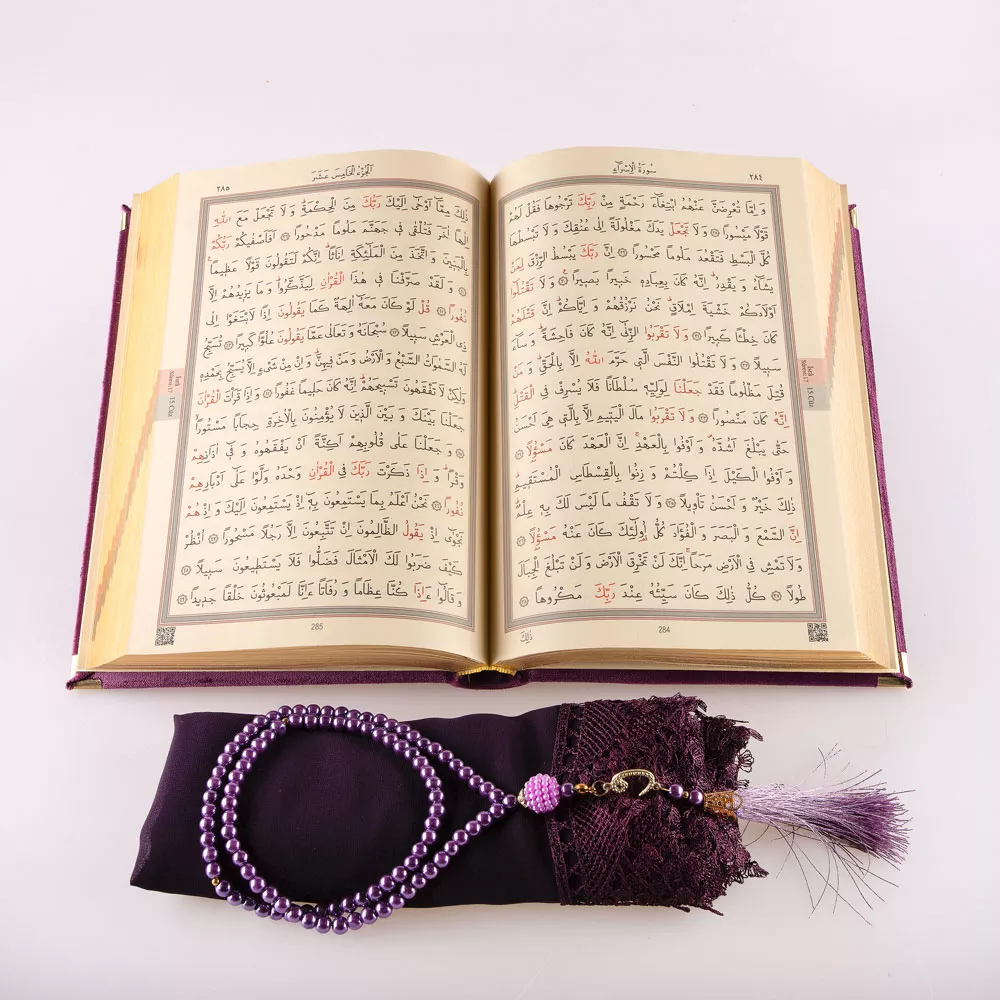 سُورَةُ الْاِسْرَاءِ
٢٨٤
وَ اِمَّا تُعْرِضَنَّ عَنْهُمُ ابْتِغَاءَ رَحْمَةٍ مِنْ رَبِّكَ تَرْجُوهَا فَقُلْ لَهُمْ
قَوْلًا مَيْسُورًا ﴿٢٨﴾ وَ لَا تَجْعَلْ يَدَكَ مَغْلُولَةً اِلٰى عُنُقِكَ وَ لَا تَبْسُطْهَا
كُلَّ الْبَسْطِ فَتَقْعُدَ مَلُومًا مَحْسُورًا ﴿٢٩﴾ اِنَّ رَبَّكَ يَبْسُطُ الرِّزْقَ لِمَنْ
يَشَاءُ وَ يَقْدِرُ اِنَّهُ كَانَ بِعِبَادِهِ خَبِيرًا بَصِيرًا ﴿٣٠﴾ وَ لَا تَقْتُلُوا
اَوْلَادَكُمْ خَشْيَةَ اِمْلَاقٍ نَحْنُ نَرْزُقُهُمْ وَ اِيَّاكُمْ اِنَّ قَتْلَهُمْ
كَانَ خِطْـًٔا كَبِيرًا ﴿٣١﴾ وَ لَا تَقْرَبُوا الزِّنٰى اِنَّهُ كَانَ فَاحِشَةً وَ سَاءَ
سَبِيلًا ﴿٣٢﴾ وَ لَا تَقْتُلُوا النَّفْسَ الَّتِي حَرَّمَ اللّٰهُ اِلَّا بِالْحَقِّ وَ مَنْ
قُتِلَ مَظْلُومًا فَقَدْ جَعَلْنَا لِوَلِيِّهِ سُلْطَانًا فَلَا يُسْرِفْ فِي الْقَتْلِ
اِنَّهُ كَانَ مَنْصُورًا ﴿٣٣﴾ وَ لَا تَقْرَبُوا مَالَ الْيَتِيمِ اِلَّا بِالَّتِي هِيَ اَحْسَنُ
حَتّٰى يَبْلُغَ اَشُدَّهُ وَ اَوْفُوا بِالْعَهْدِ اِنَّ الْعَهْدَ كَانَ مَسْؤُلًا ﴿٣٤﴾
وَ اَوْفُوا الْكَيْلَ اِذَا كِلْتُمْ وَ زِنُوا بِالْقِسْطَاسِ الْمُسْتَقِيمِ
ذٰلِكَ خَيْرٌ وَ اَحْسَنُ تَأْوِيلًا ﴿٣٥﴾ وَ لَا تَقْفُ مَا لَيْسَ لَكَ بِهِ عِلْمٌ
اِنَّ السَّمْعَ وَ الْبَصَرَ وَ الْفُؤٰدَ كُلُّ اُولٰئِكَ كَانَ عَنْهُ مَسْؤُلًا ﴿٣٦﴾
وَلَا تَمْشِ فِي الْاَرْضِ مَرَحًا اِنَّكَ لَنْ تَخْرِقَ الْاَرْضَ وَ لَنْ تَبْلُغَ الْجِبَالَ
طُولًا ﴿٣٧﴾ كُلُّ ذٰلِكَ كَانَ سَيِّئُهُ عِنْدَ رَبِّكَ مَكْرُوهًا ﴿٣٨﴾
ذٰلِكَ
284
İsrâ
Sûresi 17
15.Cüz
اَلْجُزْءُ الْخَامِسَ عَشَرَ
٢٨٥
ذٰلِكَ مِمَّا اَوْحٰى اِلَيْكَ رَبُّكَ مِنَ الْحِكْمَةِ وَ لَا تَجْعَلْ مَعَ اللّٰهِ
اِلٰهًا اٰخَرَ فَتُلْقٰى فِي جَهَنَّمَ مَلُومًا مَدْحُورًا ﴿٣٩﴾ اَفَاَصْفٰيكُمْ رَبُّكُمْ
بِالْبَنِينَ وَ اتَّخَذَ مِنَ الْمَلٰئِكَةِ اِنَاثًا اِنَّكُمْ لَتَقُولُونَ قَوْلًا عَظِيمًا
﴿٤٠﴾ وَ لَقَدْ صَرَّفْنَا فِي هٰذَا الْقُرْاٰنِ لِيَذَّكَّرُوا وَ مَا يَزِيدُهُمْ اِلَّا
نُفُورًا ﴿٤١﴾ قُلْ لَوْ كَانَ مَعَهُ اٰلِهَةٌ كَمَا يَقُولُونَ اِذًا لَابْتَغَوْا اِلٰى
ذِي الْعَرْشِ سَبِيلًا ﴿٤٢﴾ سُبْحَانَهُ وَ تَعَالٰى عَمَّا يَقُولُونَ عُلُوًّا كَبِيرًا ﴿٤٣﴾ تُسَبِّحُ
لَهُ السَّمٰوَاتُ السَّبْعُ وَ الْاَرْضُ وَ مَنْ فِيهِنَّ وَ اِنْ مِنْ شَيْءٍ اِلَّا يُسَبِّحُ بِحَمْدِهِ
وَلٰكِنْ لَا تَفْقَهُونَ تَسْبِيحَهُمْ اِنَّهُ كَانَ حَلِيمًا غَفُورًا ﴿٤٤﴾ وَ اِذَا قَرَأْتَ الْقُرْاٰنَ
جَعَلْنَا بَيْنَكَ وَ بَيْنَ الَّذِينَ لَا يُؤْمِنُونَ بِالْاٰخِرَةِ حِجَابًا مَسْتُورًا
﴿٤٥﴾ وَ جَعَلْنَا عَلٰى قُلُوبِهِمْ اَكِنَّةً اَنْ يَفْقَهُوهُ وَ فِي اٰذَانِهِمْ
وَقْرًا وَ اِذَا ذَكَرْتَ رَبَّكَ فِي الْقُرْاٰنِ وَحْدَهُ وَلَّوْا عَلٰى اَدْبَارِهِمْ
نُفُورًا ﴿٤٦﴾ نَحْنُ اَعْلَمُ بِمَا يَسْتَمِعُونَ بِهِ اِذْ يَسْتَمِعُونَ اِلَيْكَ وَ اِذْ هُمْ
نَجْوٰى اِذْ يَقُولُ الظَّالِمُونَ اِنْ تَتَّبِعُونَ اِلَّا رَجُلًا مَسْحُورًا ﴿٤٧﴾ اُنْظُرْ
كَيْفَ ضَرَبُوا لَكَ الْاَمْثَالَ فَضَلُّوا فَلَا يَسْتَطِيعُونَ سَبِيلًا ﴿٤٨﴾
وَ قَالُوا ءَاِذَا كُنَّا عِظَامًا وَ رُفَاتًا ءَاِنَّا لَمَبْعُوثُونَ خَلْقًا جَدِيدًا ﴿٤٩﴾
285
İsrâ
Sûresi 17
15.Cüz